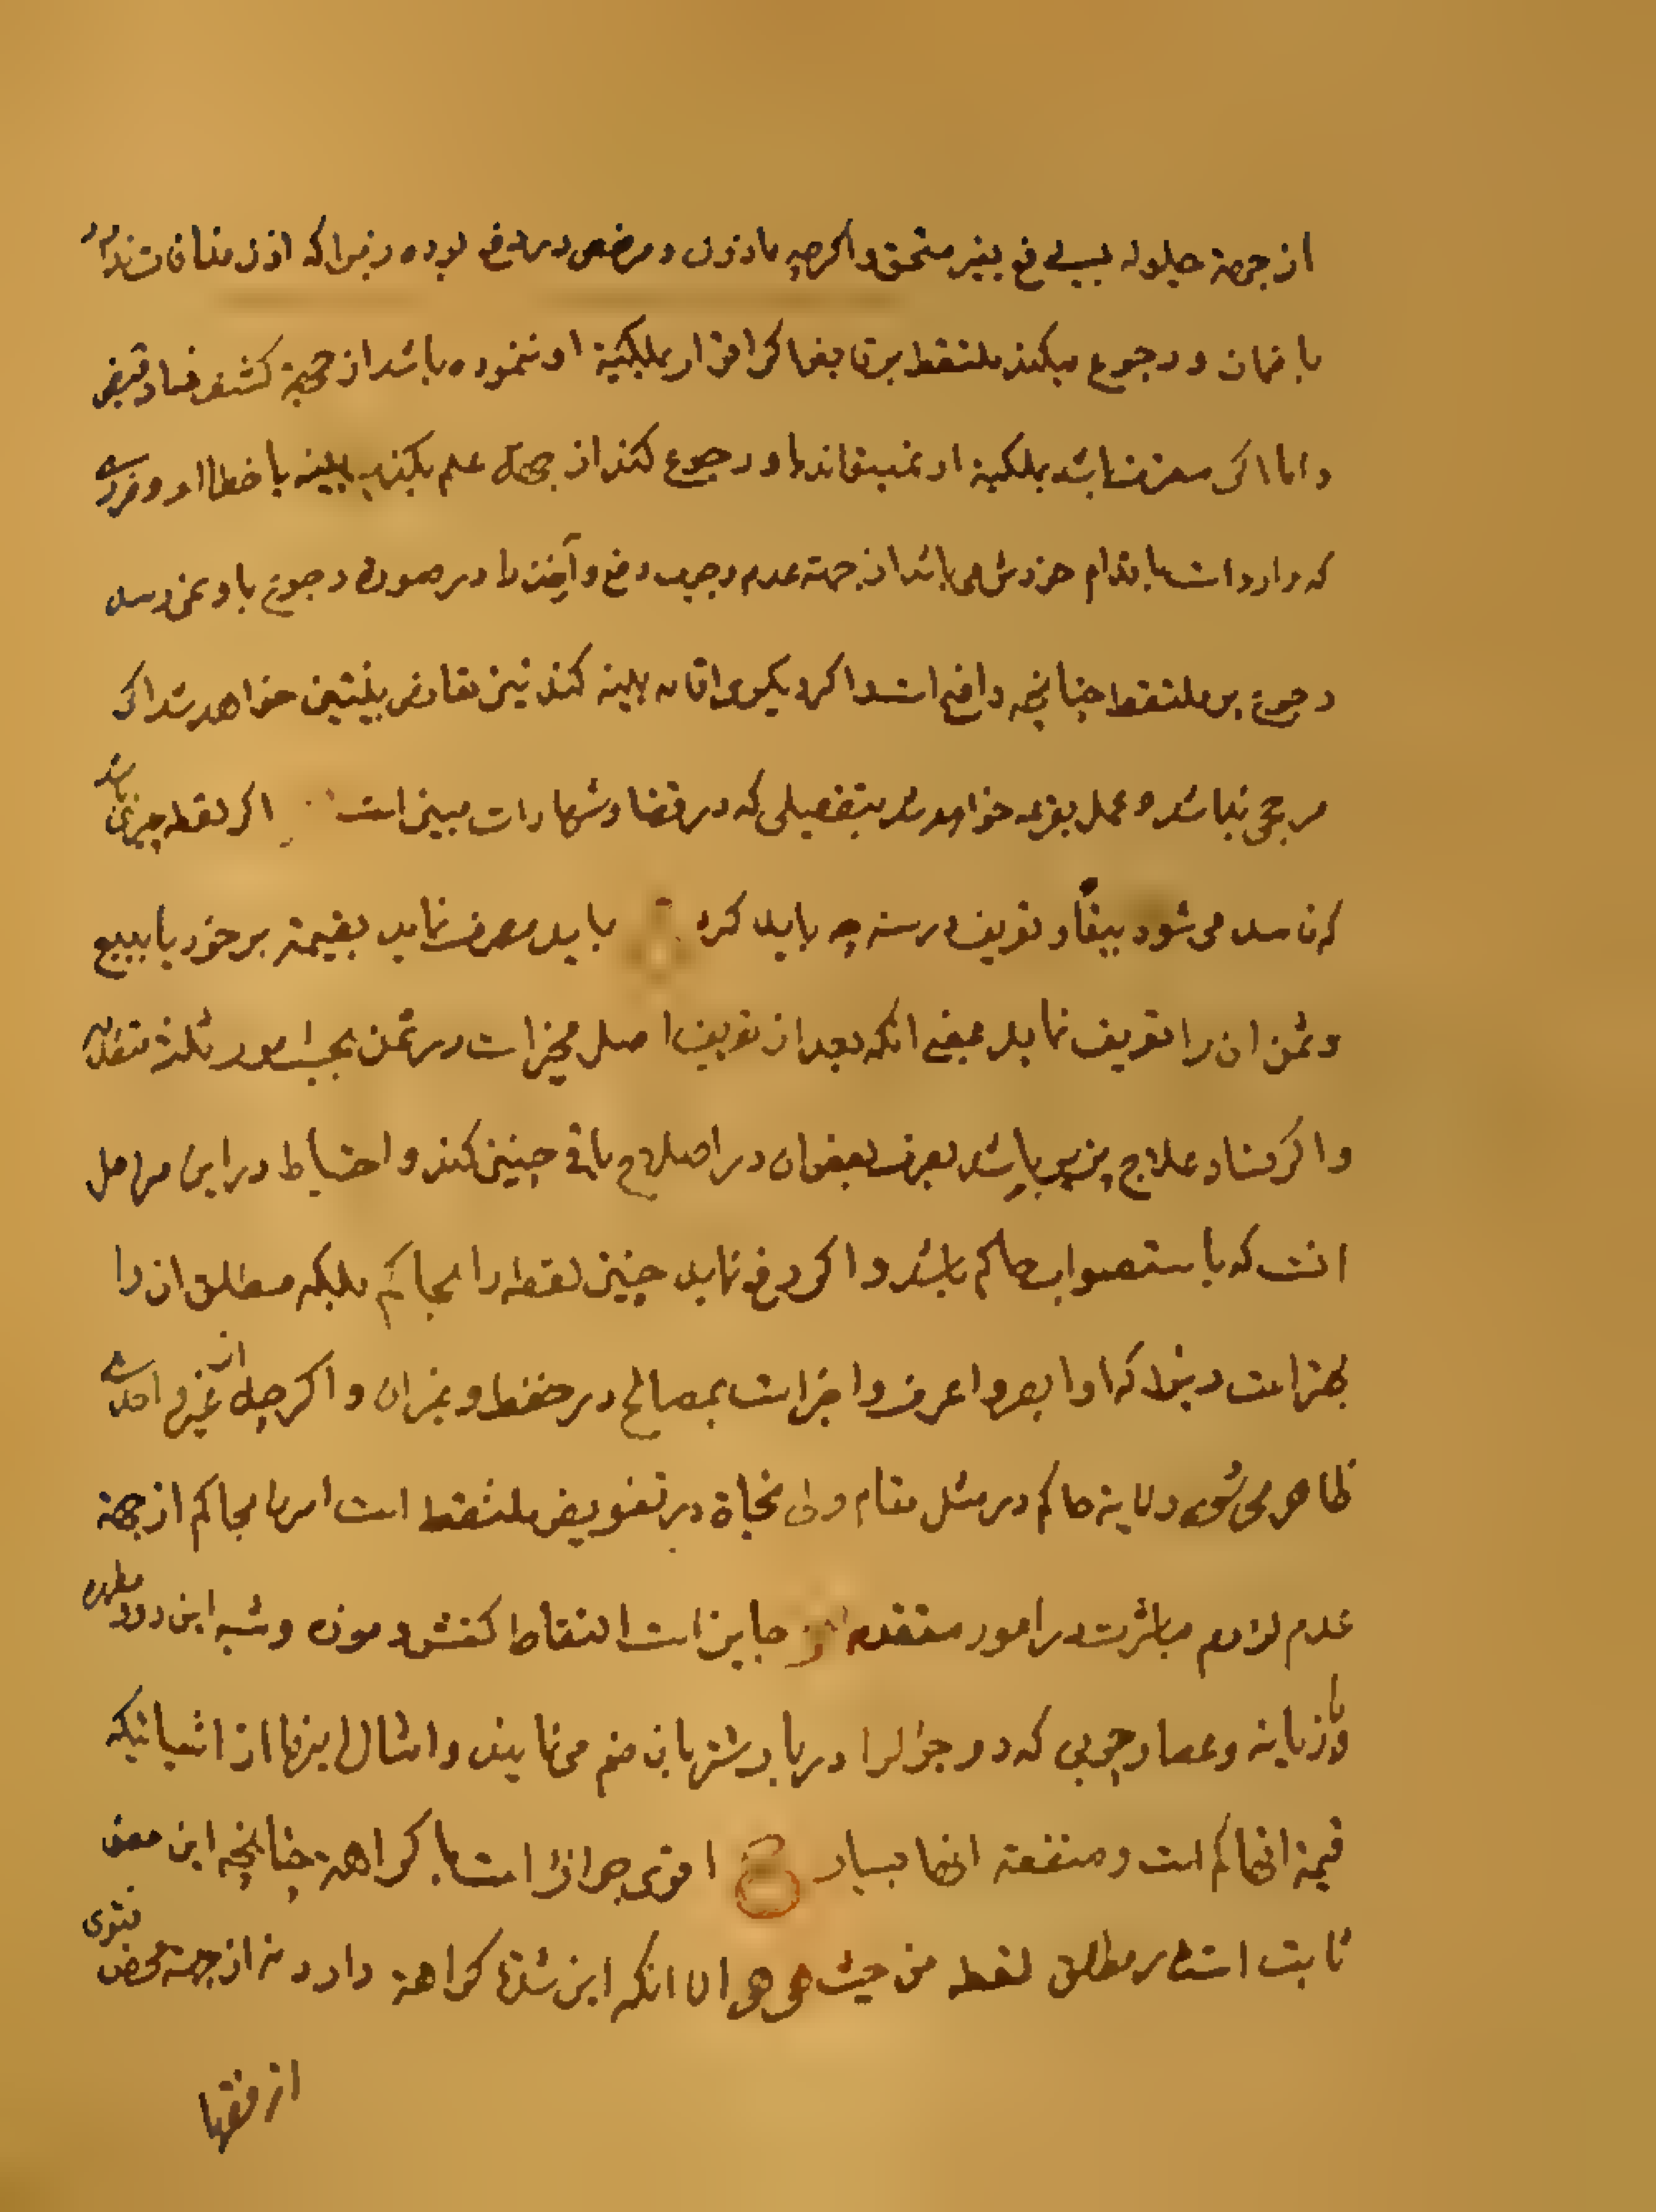 از جهة حیلوله بسببی فی بغیر مستحق و اکرچه ماذون و مرخص در دفع بوده زیرا که اذن منافات ندارد
با ضمان و رجوع میکند ملتقط بر قابض اکر اقرار بملکیة او ننموده باشد از جهة کشف فساد قبض
و اما اکر معترف باشد بملکیة او نمیتواند باو رجوع کند از جهة علم بکذب بینه یا خطا او و فردی
که وارد است باقدام خودش می باشد از جهة عدم وجوب دفع و آخذ را در صورة رجوع باو نمیرسد
رجوع بر ملتقط چنانچه واضح است و اکر دیکری اقامه بینه کند نیز تعارض بینتین خواهد شد اکر
مرجحی نباشد و عمل بقرعه خواهد شد بتفصیلی که در قضا و شهادات مبین است اکر لقطه چیزی باشد
که فاسد می شود ببقاء و تعریف درسنه چه باید کرد باید صرف نماید بقیمة بر خود یا ببیع
و ثمن ان را تعریف نماید بمعنی انکه بعد از تعریف اصل مخیر است در ثمن بحسب امور ثلثه متقدمه
و اکر فساد علاج پذیر باشد بصرف بعض ان در اصلاح باقی چنین کند و احتیاط در این مراحل
انست که باستصواب حاکم باشد و اکر دفع نماید چنین لقطه را بحاکم بلکه مطلق ان را
بهتر است زیرا که او ابصر و اعرف و اخبر است بمصالح در حفظ و غیر ان و اکر چه از غیر واحدی
ظاهر می شود ولایة حاکم در مثل مقام ولی نجاة در تفویض ملتقط است امر را بحاکم از جهة
عدم لزوم مباشرت در امور متقدمه جایز است التقاط کفش و موزه و شبه این دو و مطهره
و تازیانه و عصا و چوبی که دو جوال را در بار شتر بان ضم می نمایند و امثال اینها از اشیائیکه
قیمة انها کم است و منفعة انها بسیار اقوی جواز است با کراهة چنانچه این معنی
ثابت است در مطلق لقطه من حیث هو هو الا انکه این شدة کراهة دارد نه از جهة محض فتوی
از فقها